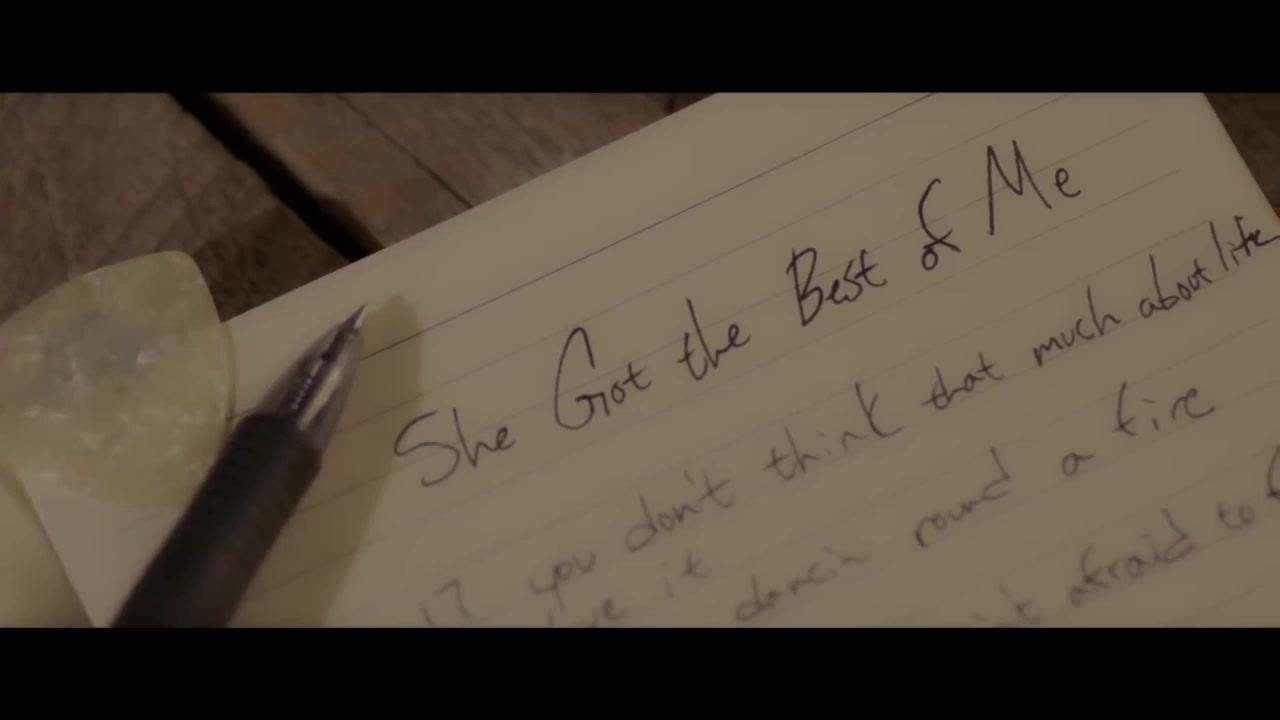 She Got the Best of Me
17 you don't think that much about life
it dancin round a fire
afraid to